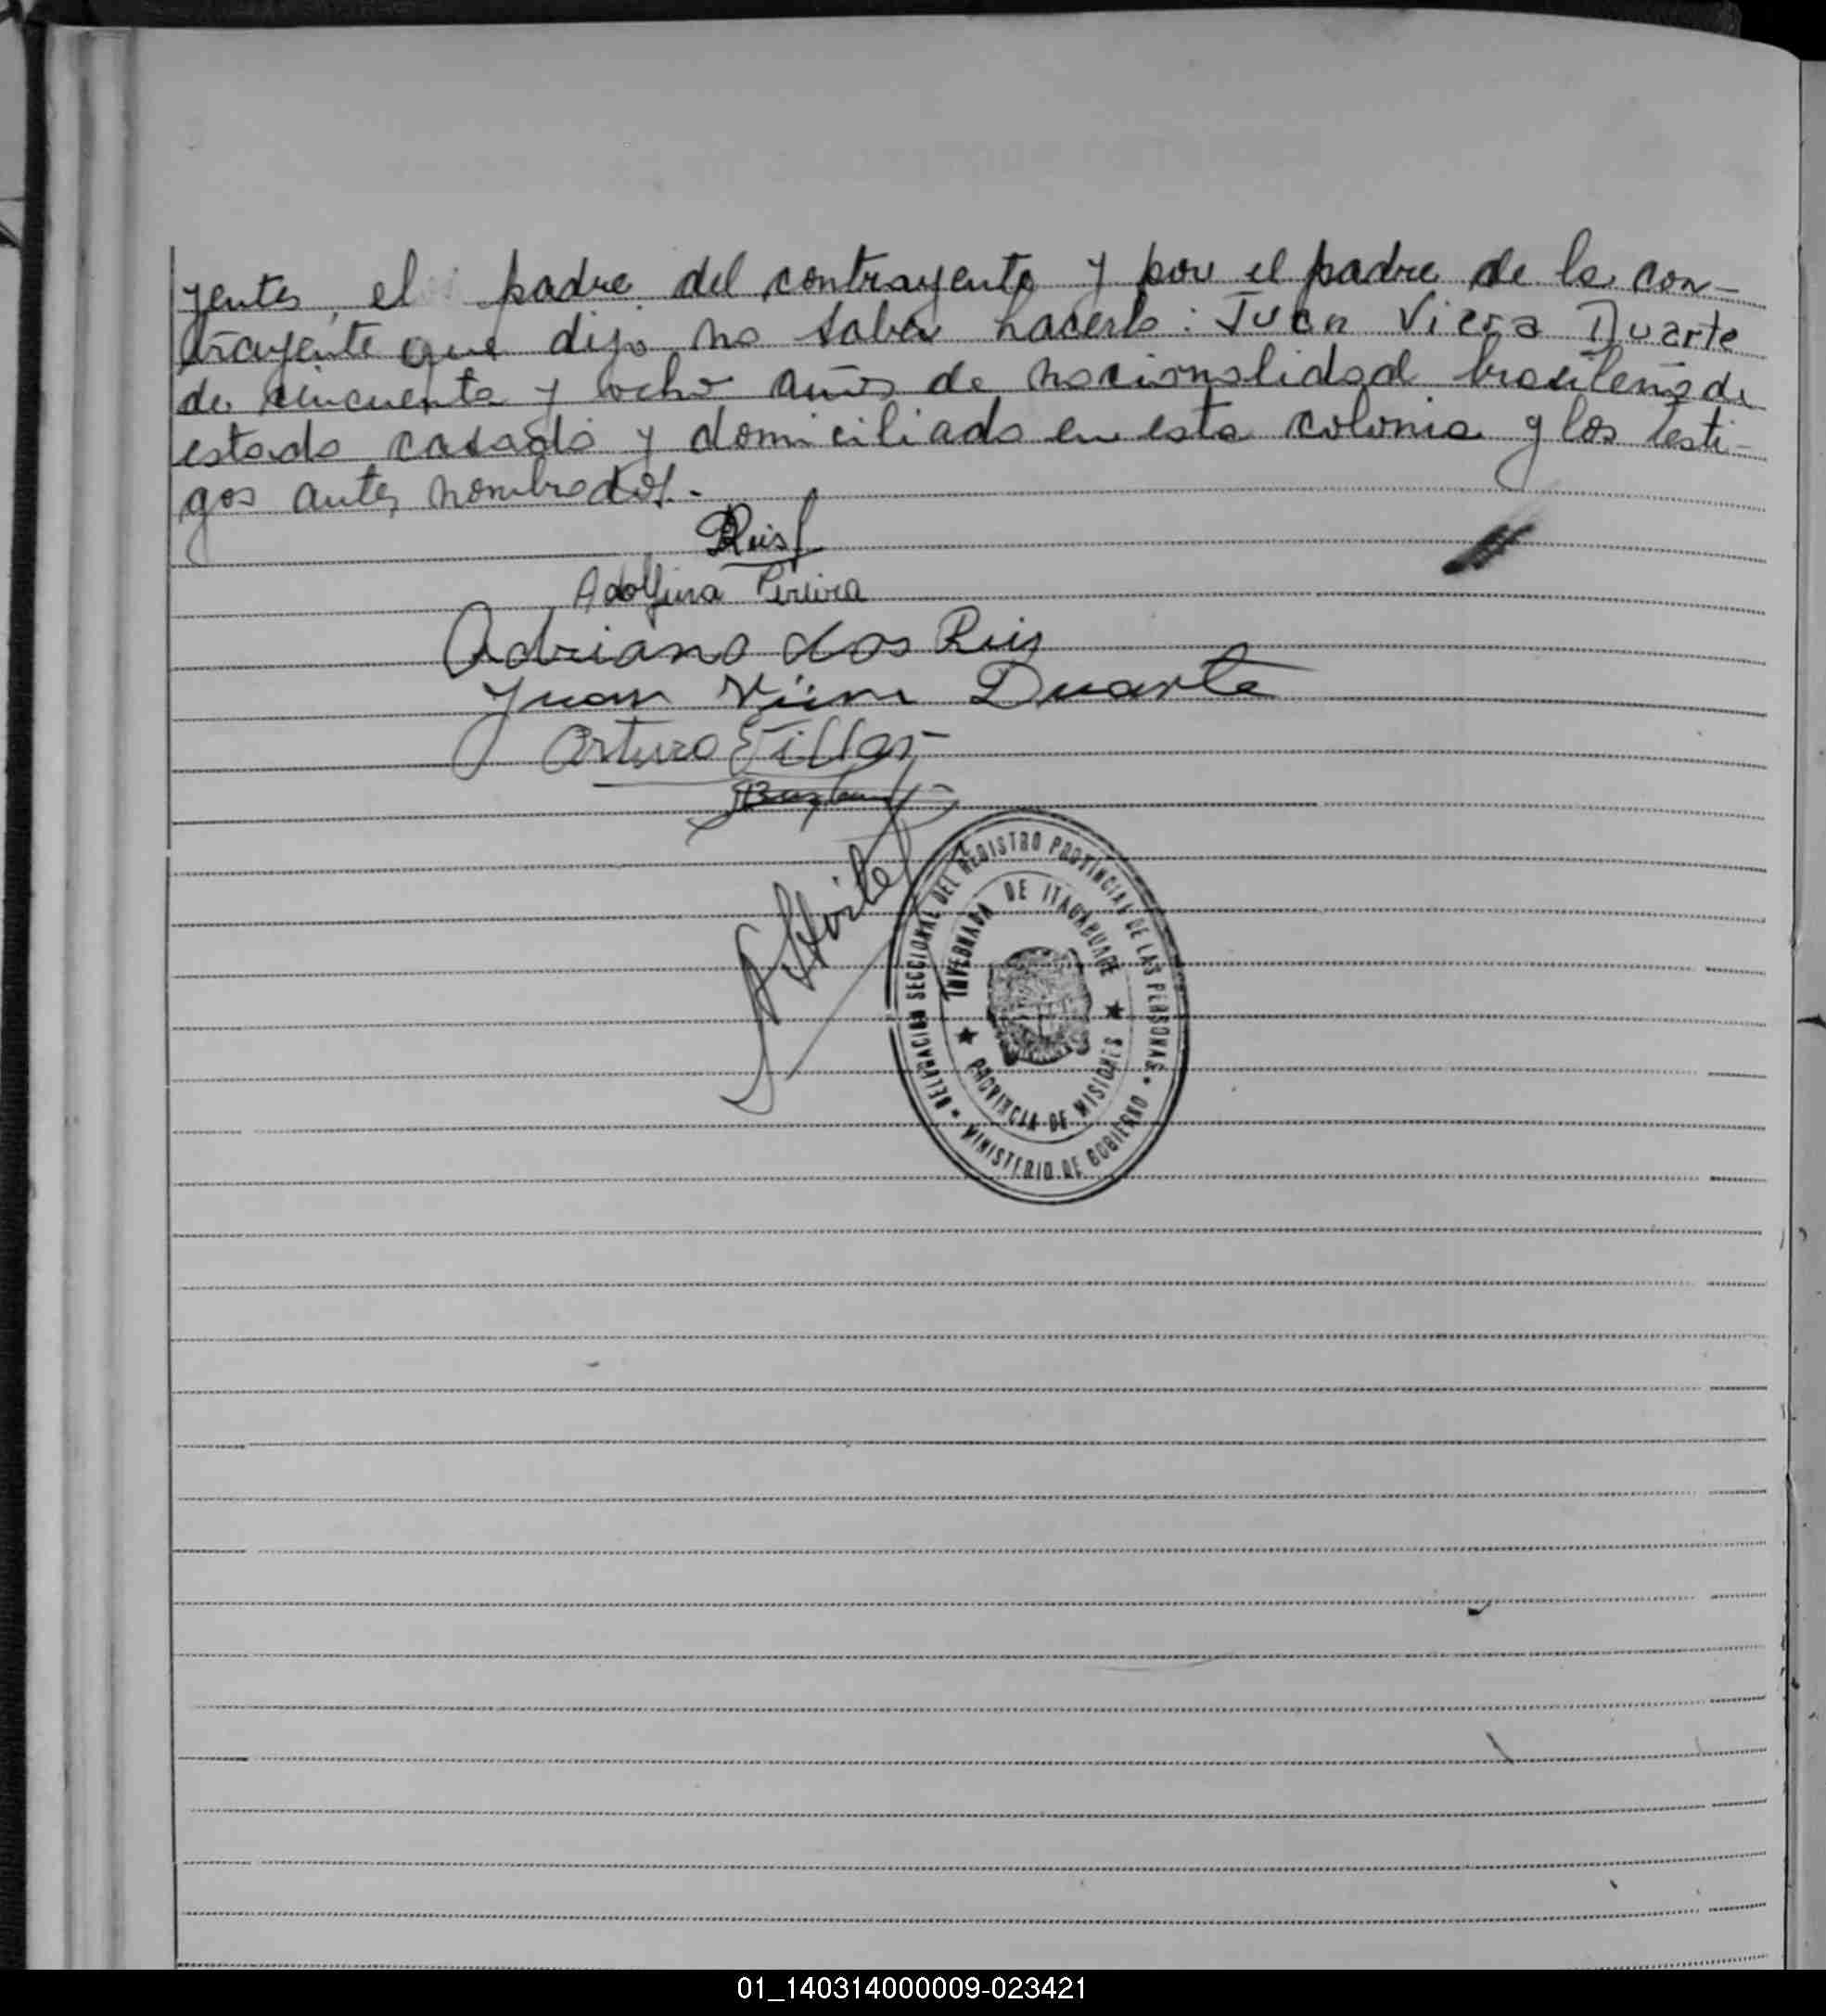 yentes, el padre del contrayente y por el padre de la con-
trayente que dijo no saber hacerlo: Juan Viera Duarte
de cincuenta y ocho años de nacionalidad brasileña de
estado casado y domiciliado en esta colonia y los testi-
gos antes nombrados.-
Reis
Adolfina Pereira
Adriano dos Reis
Juan Duarte
Arturo
DELEGACION SECCIONAL DEL REGISTRO PROVINCIAL DE LAS PERSONAS
INVERNADA DE ITACARUARE
PROVINCIA DE MISIONES
MINISTERIO DE GOBIERNO
01_140314000009-023421